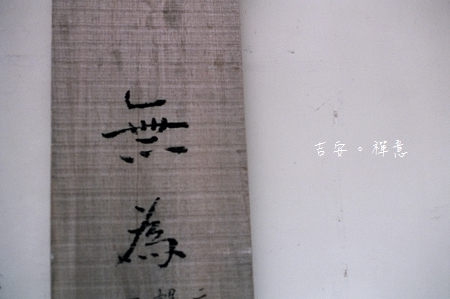 無為
吉安。禪意